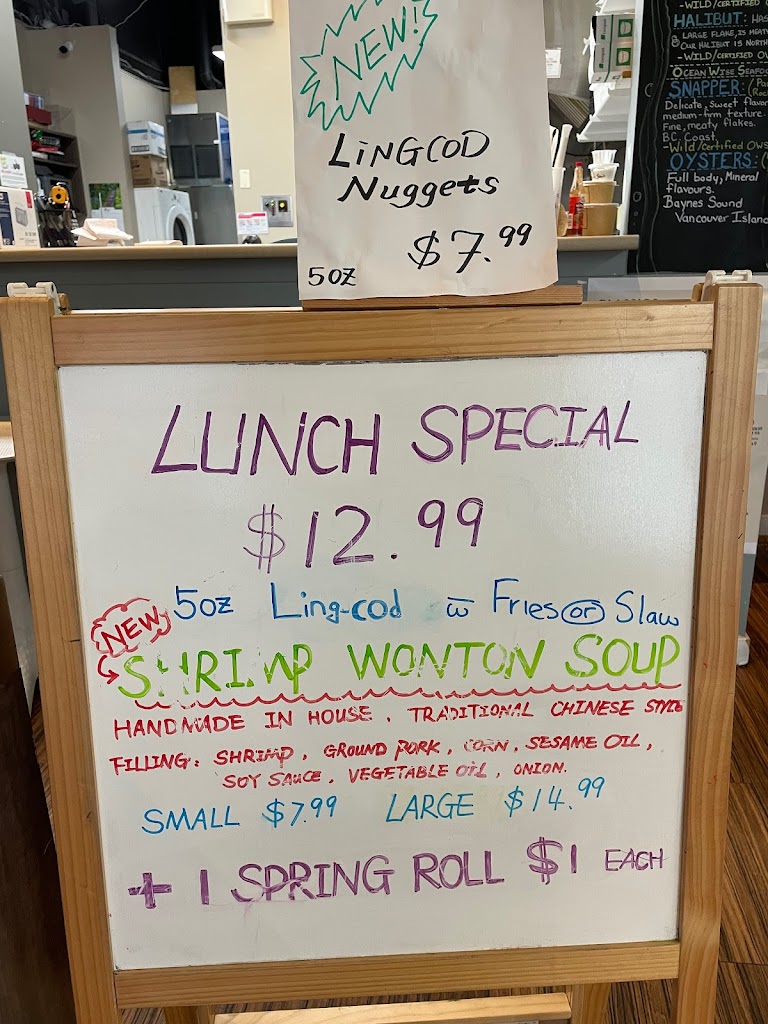 NEW!
LiNGCOD
Nuggets
$7.99
5oz
- WILD/CERTIFIED
HALIBUT: HAS
LARGE FLAKE, IS MEATY
OUR HALIBUT IS NORTH
-WILD/CERTIFIED OW
OCEAN WISE SEAFOO
SNAPPER:
Delicate, sweet flavor
medium-firm texture.
Fine, meaty flakes.
B.C. Coast
-Wild/Certified OWS
OYSTERS:
Full body, Mineral
flavours.
Baynes Sound
Vancouver Island
LUNCH SPECIAL
$12.99
5oz Ling-cod w̅ Fries or Slaw
NEW
SHRIMP WONTON SOUP
HANDMADE IN HOUSE. TRADITIONAL CHINESE STYLE
FILLING: SHRIMP, GROUND PORK, CORN, SESAME OIL,
SOY SAUCE, VEGETABLE OIL, ONION.
SMALL $7.99 LARGE $14.99
+ 1 SPRING ROLL $1 EACH